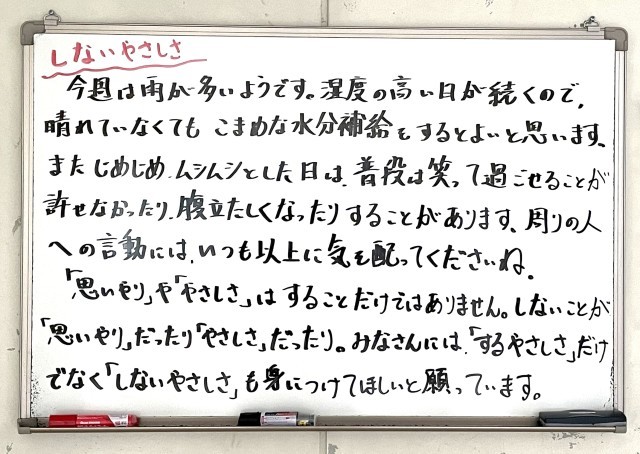 しないやさしさ
今週は雨が多いようです。湿度の高い日が続くので、
晴れていなくても こまめな水分補給をするとよいと思います。
また じめじめ、ムシムシとした日は、普段は笑って過ごせることが
許せなかったり、腹立たしくなったりすることがあります。周りの人
への言動には、いつも以上に気を配ってくださいね。
「思いやり」や「やさしさ」はすることだけではありません。しないことが
「思いやり」だったり「やさしさ」だったり。みなさんには、「するやさしさ」だけ
でなく「しないやさしさ」も身につけてほしいと願っています。